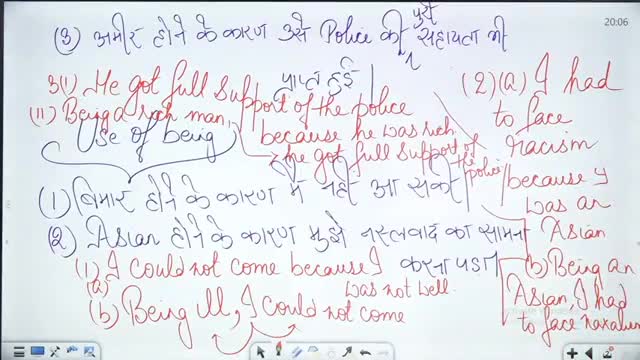 20:06
(3) अमीर होने के कारण उसे Police की पुरी सहायता भी
प्राप्त हुई
3(i) He got full support of the police
because he was rich.
(ii) Being a rich man,
he got full support of
the police
Use of being
(1) बिमार होने के कारण मैं नही आ सका
(2) Asian होने के कारण मुझे नस्लवाद का सामना
करना पडा
(1) I could not come because I
was not well.
(a)
(b) Being ill, I could not come
(2)(a) I had
to face
racism
because I
was an
Asian
(b) Being an
Asian, I had
to face